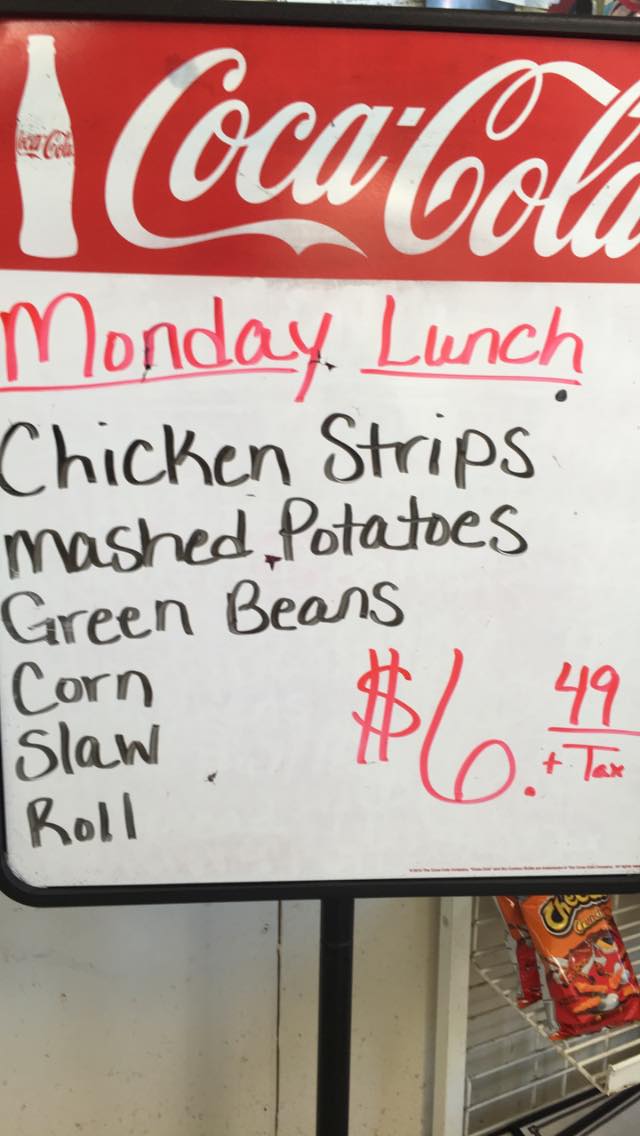 Coca-Cola
Coca-Cola
Monday Lunch
Chicken Strips
mashed Potatoes
Green Beans
Corn
Slaw
Roll
$6.49
+ Tax
Cheetos
Crunchy